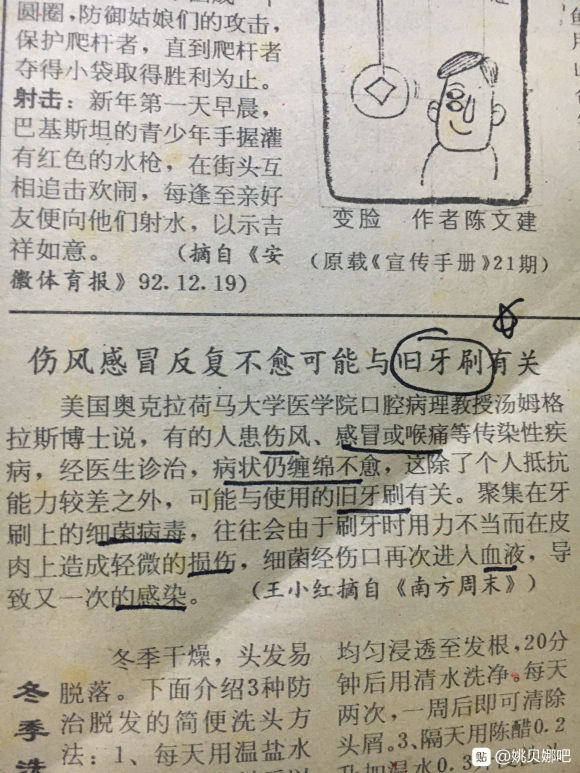 圆圈，防御姑娘们的攻击，
保护爬杆者，直到爬杆者
夺得小袋取得胜利为止。
射击：新年第一天早晨，
巴基斯坦的青少年手握灌
有红色的水枪，在街头互
相追击欢闹，每逢至亲好
友便向他们射水，以示吉
祥如意。（摘自《安
徽体育报》92.12.19）
变脸 作者陈文建
（原载《宣传手册》21期）
伤风感冒反复不愈可能与旧牙刷有关
美国奥克拉荷马大学医学院口腔病理教授汤姆格
拉斯博士说，有的人患伤风、感冒或喉痛等传染性疾
病，经医生诊治，病状仍缠绵不愈，这除了个人抵抗
能力较差之外，可能与使用的旧牙刷有关。聚集在牙
刷上的细菌病毒，往往会由于刷牙时用力不当而在皮
肉上造成轻微的损伤，细菌经伤口再次进入血液，导
致又一次的感染。（王小红摘自《南方周末》）
冬季洗
冬季干燥，头发易
脱落。下面介绍3种防
治脱发的简便洗头方
法：1、每天用温盐水
均匀浸透至发根，20分
钟后用清水洗净。每天
两次，一周后即可清除
头屑。3、隔天用陈醋0.2
贴 @姚贝娜吧